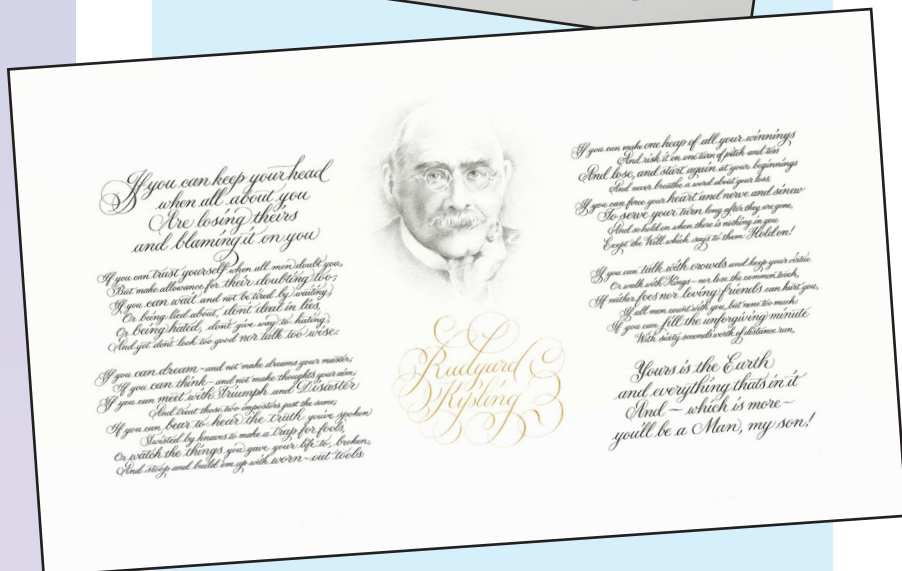 If you can keep your head
when all about you
Are losing theirs
and blaming it on you
If you can trust yourself when all men doubt you,
But make allowance for their doubting too;
If you can wait and not be tired by waiting,
Or being lied about, don't deal in lies,
Or being hated, don't give way to hating,
And yet don't look too good nor talk too wise:
If you can dream – and not make dreams your master;
If you can think – and not make thoughts your aim;
If you can meet with Triumph and Disaster
And treat those two impostors just the same;
If you can bear to hear the truth you've spoken
Twisted by knaves to make a trap for fools,
Or watch the things you gave your life to, broken,
And stoop and build em up with worn – out tools
Rudyard
Kipling
If you can make one heap of all your winnings
And risk it on one turn of pitch and toss
And lose, and start again at your beginnings
And never breathe a word about your loss,
If you can force your heart and nerve and sinew
To serve your turn long after they are gone,
And so hold on when there is nothing in you
Except the Will which says to them: Hold on!
If you can talk with crowds and keep your virtue
Or walk with Kings – nor lose the common touch,
If neither foes nor loving friends can hurt you,
If all men count with you, but none too much;
If you can fill the unforgiving minute
With sixty seconds worth of distance run,
Yours is the Earth
and everything that's in it
And – which is more –
you'll be a Man, my son!